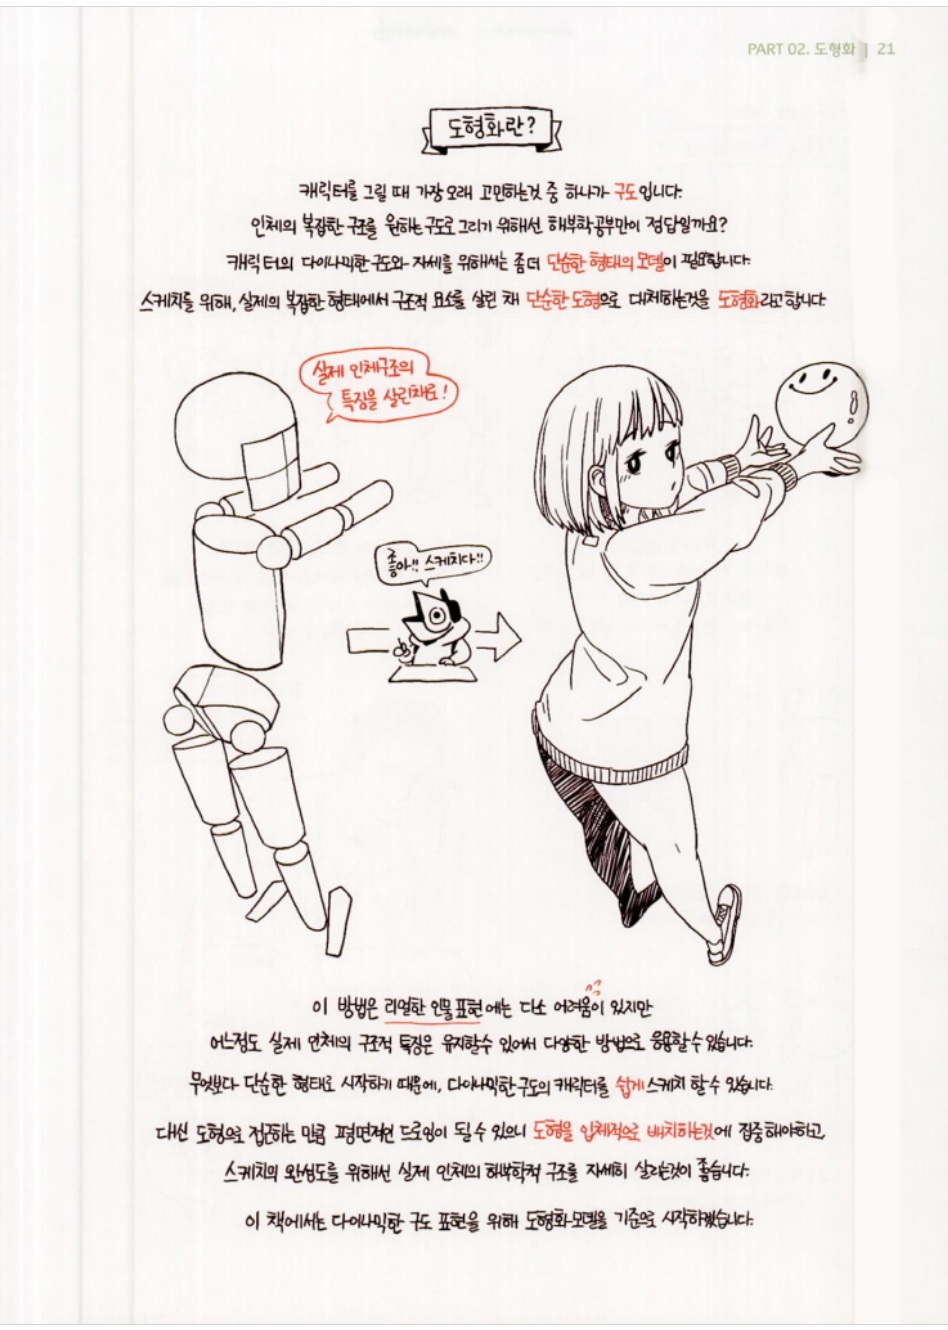 PART 02. 도형화 | 21
도형화란?
캐릭터를 그릴 때 가장 오래 고민하는것 중 하나가 구도입니다.
인체의 복잡한 구조를 원하는 구도로 그리기 위해선 해부학공부만이 정답일까요?
캐릭터의 다이나믹한 구도와 자세를 위해서는 좀 더 단순한 형태의 모델이 필요합니다.
스케치를 위해, 실제의 복잡한 형태에서 구조적 요소를 살린 채 단순한 도형으로 대체하는것을 도형화라고 합니다.
실제 인체구조의
특징을 살린채로!
좋아!! 스케치다!!
이 방법은 리얼한 인물 표현에는 다소 어려움이 있지만
어느정도 실제 인체의 구조적 특징은 유지할수 있어서 다양한 방법으로 응용할수 있습니다.
무엇보다 단순한 형태로 시작하기 때문에, 다이나믹한 구도의 캐릭터를 쉽게 스케치 할 수 있습니다.
대신 도형으로 접근하는 만큼 평면적인 드로잉이 될 수 있으니 도형을 입체적으로 배치하는것에 집중해야하고,
스케치의 완성도를 위해선 실제 인체의 해부학적 구조를 자세히 살피는것이 좋습니다.
이 책에서는 다이나믹한 구도 표현을 위해 도형화 모델을 기준으로 시작하겠습니다.